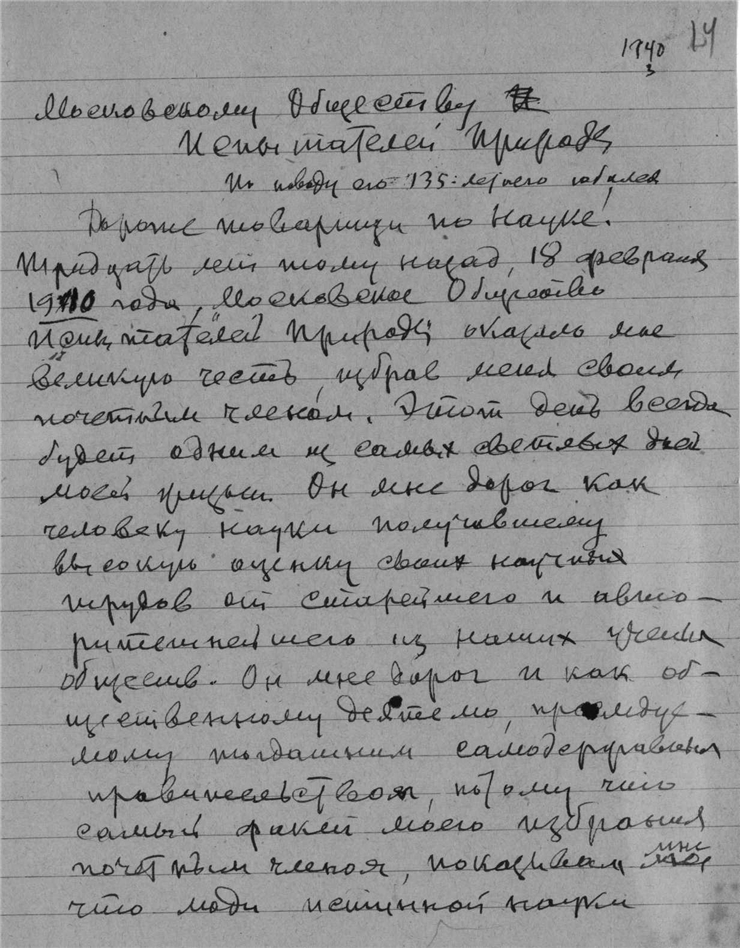 1940
3
14
Московскому Обществу
Испытателей Природы
По поводу его 135-летнего юбилея
Дорогие товарищи по науке!
Тридцать лет тому назад, 18 февраля
1910 года, Московское Общество
Испытателей Природы оказало мне
великую честь, избрав меня своим
почетным членом. Этот день всегда
будет одним из самых светлых дней
моей жизни. Он мне дорог как
человеку науки получившему
высокую оценку своих научных
трудов от старейшего и авто-
ритетнейшего из наших ученых
обществ. Он мне дорог и как об-
щественному деятелю, преследуе-
мому тогдашним самодержавным
правительством, потому что
самый факт моего избрания
почетным членом, показывал мне
что люди истинной науки